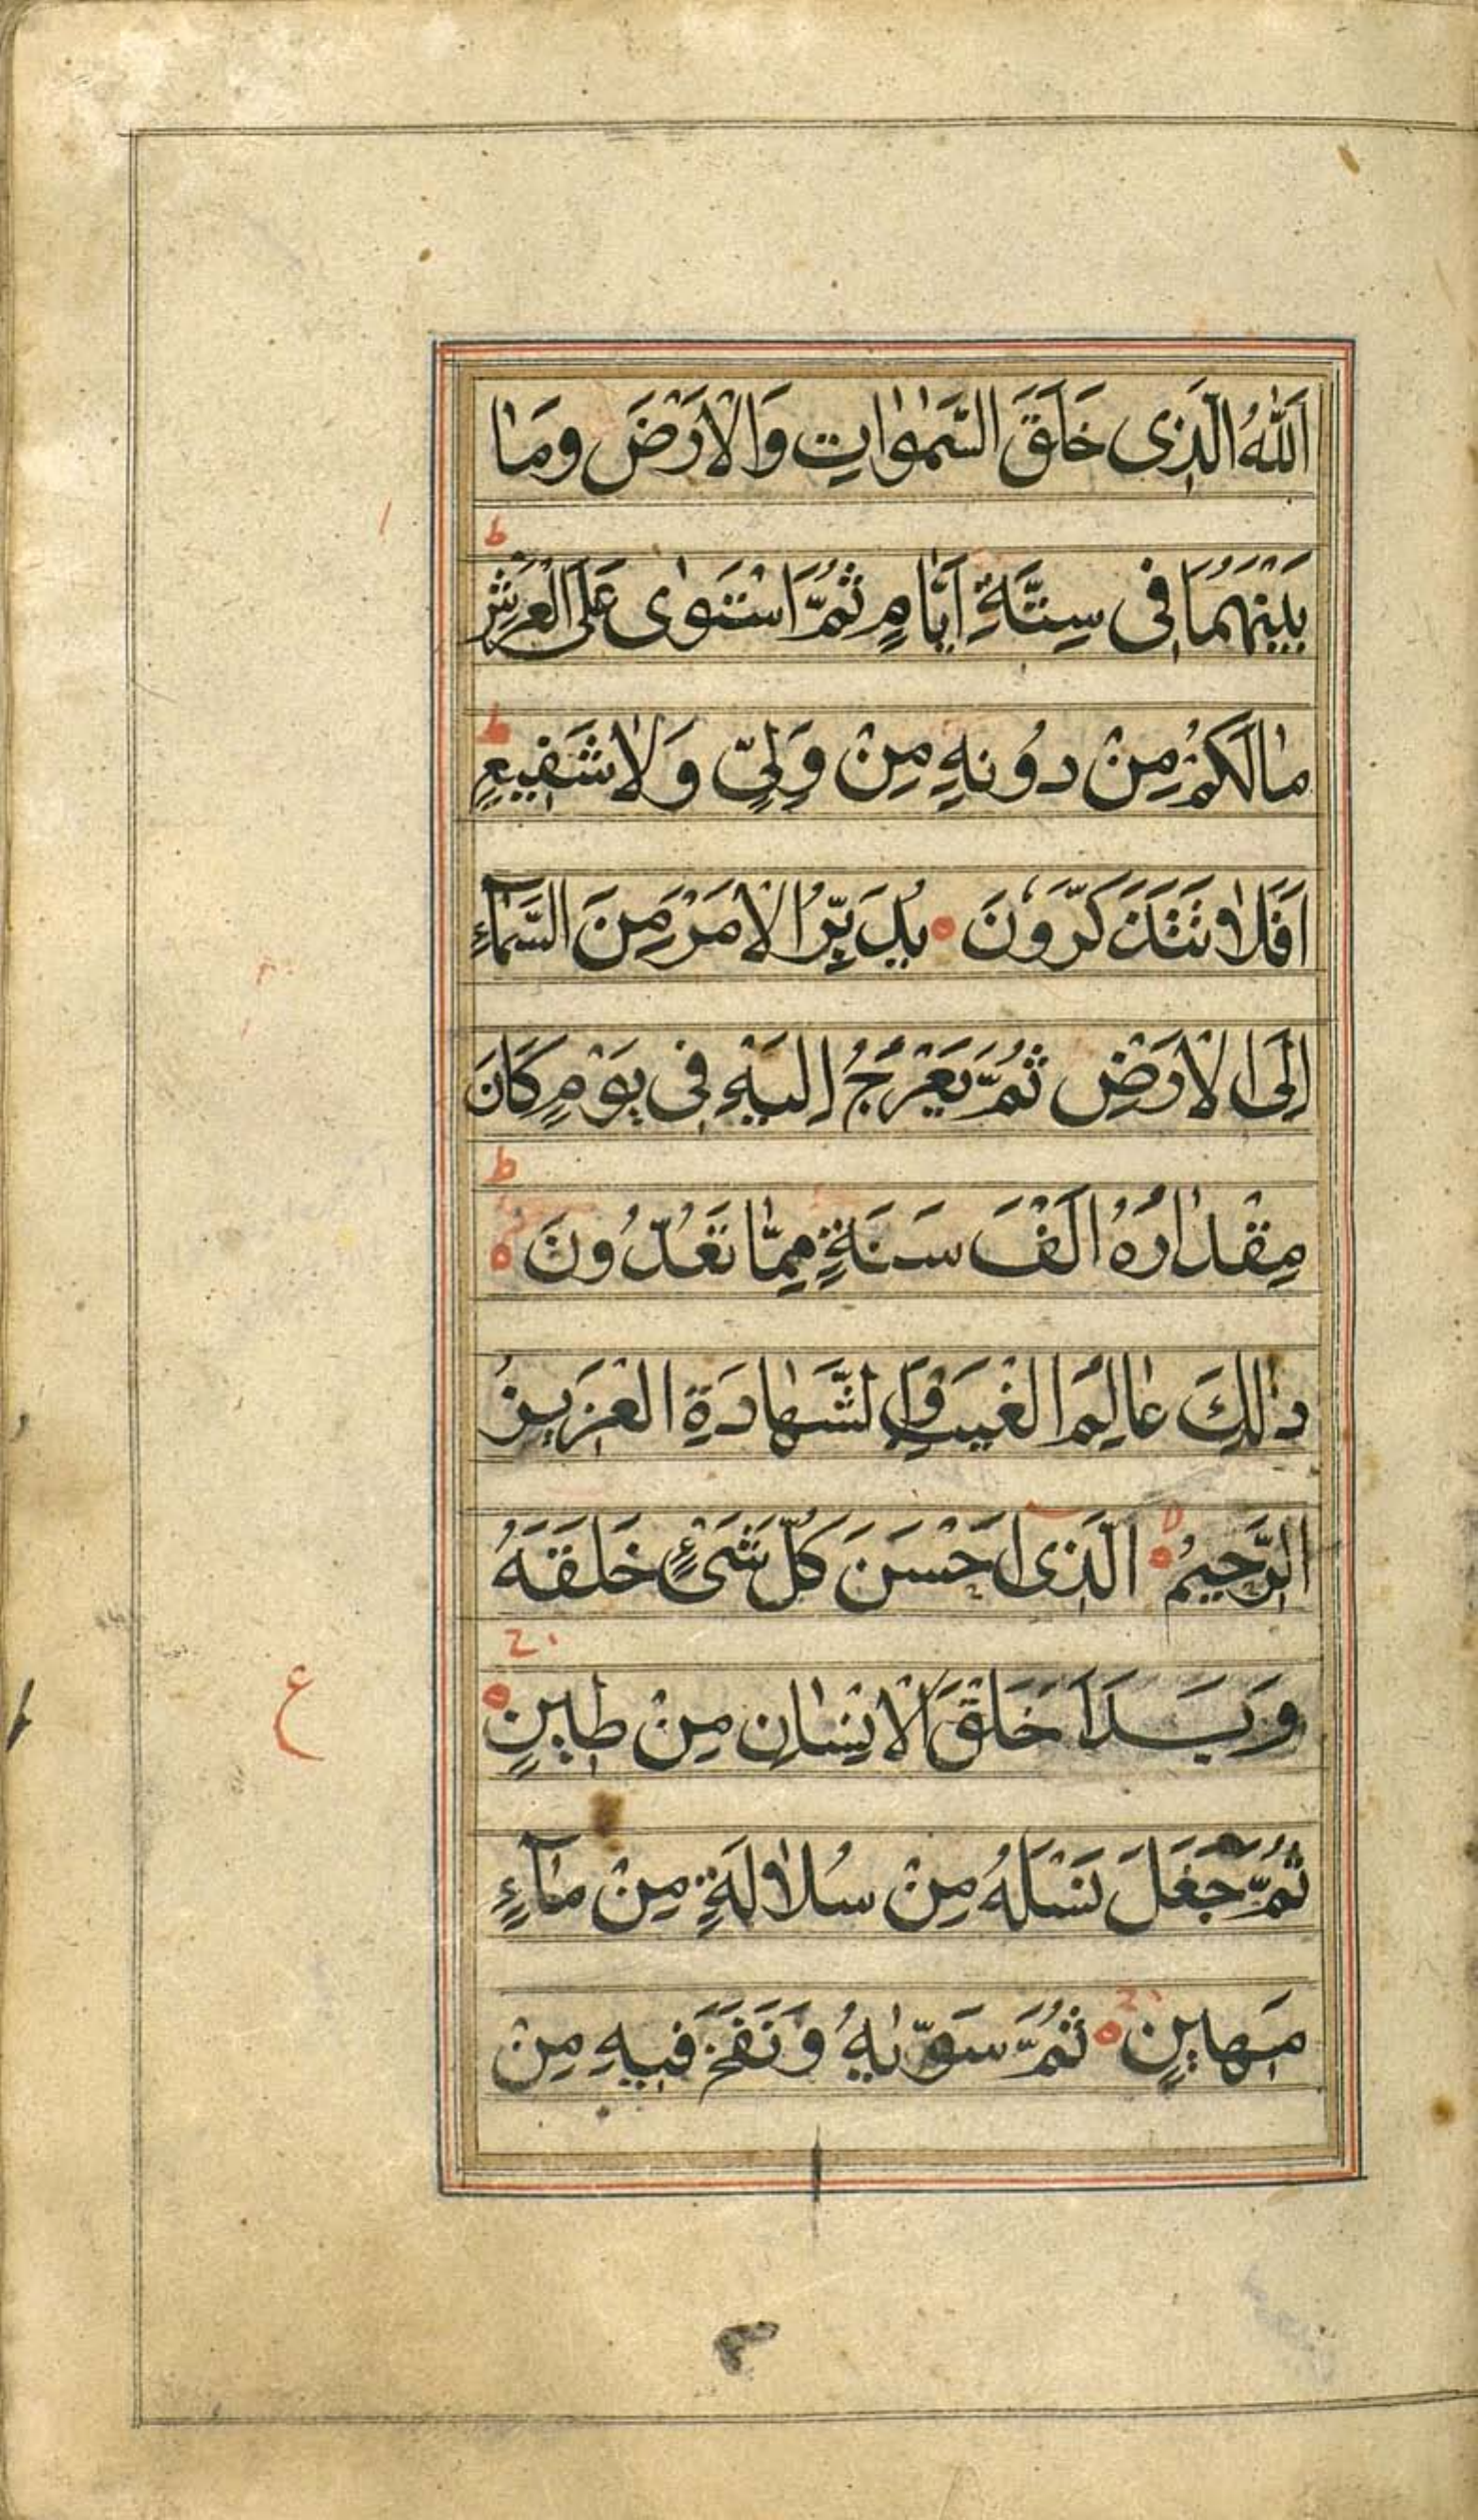 اَللّٰهُ الَّذِى خَلَقَ السَّمٰوٰاتِ وَالْاَرْضَ وَمٰا
بَيْنَهُمَا فِى سِتَّةِ اَيّٰامٍ ثُمَّ اسْتَوٰى عَلَى الْعَرْشِ ط
مٰا لَكُمْ مِنْ دُونِهِ مِنْ وَلِىٍّ وَلاٰ شَفِيعٍ ط
اَفَلاٰ تَتَذَكَّرُونَ ۝ يُدَبِّرُ الْاَمْرَ مِنَ السَّمٰآءِ
اِلَى الْاَرْضِ ثُمَّ يَعْرُجُ اِلَيْهِ فِى يَوْمٍ كَانَ
مِقْدٰارُهُ اَلْفَ سَنَةٍ مِمّٰا تَعُدُّونَ ۝ ط
ذٰلِكَ عٰالِمُ الْغَيْبِ وَالشَّهٰادَةِ الْعَزِيزُ
الرَّحِيمُ ۝ الَّذِىٓ اَحْسَنَ كُلَّ شَىْءٍ خَلَقَهُ
وَبَدَاَ خَلْقَ الْاِنْسٰانِ مِنْ طِينٍ ۝ ج
ع
ثُمَّ جَعَلَ نَسْلَهُ مِنْ سُلاٰلَةٍ مِنْ مٰآءٍ
مَهِينٍ ۝ ج ثُمَّ سَوّٰيهُ وَنَفَخَ فِيهِ مِنْ